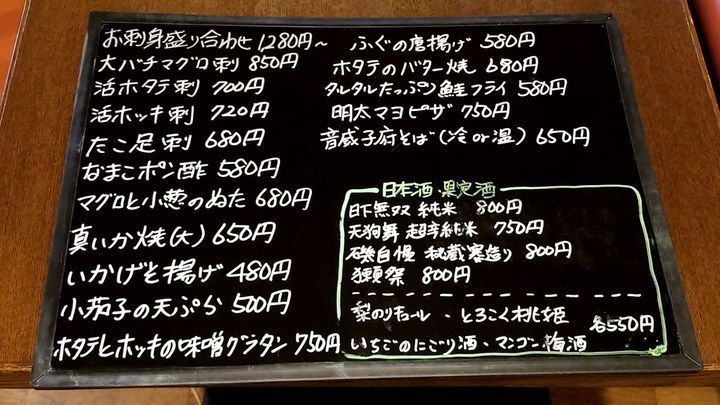 お刺身盛り合わせ 1280円~
大バチマグロ刺 850円
活ホタテ刺 700円
活ホッキ刺 720円
たこ足刺 680円
なまこポン酢 580円
マグロと小葱のぬた 680円
真いか焼(大) 650円
いかげそ揚げ 480円
小茄子の天ぷら 500円
ホタテとホッキの味噌グラタン 750円
ふぐの唐揚げ 580円
ホタテのバター焼 680円
タルタルたっぷり鮭フライ 580円
明太マヨピザ 750円
音威子府そば(冷or温) 650円
日本酒・果実酒
日下無双 純米 800円
天狗舞 超辛純米 750円
磯自慢 秘蔵寒造り 800円
獺祭 800円
梨のリキュール・とろこく桃姫
各550円
いちごのにごり酒・マンゴー梅酒